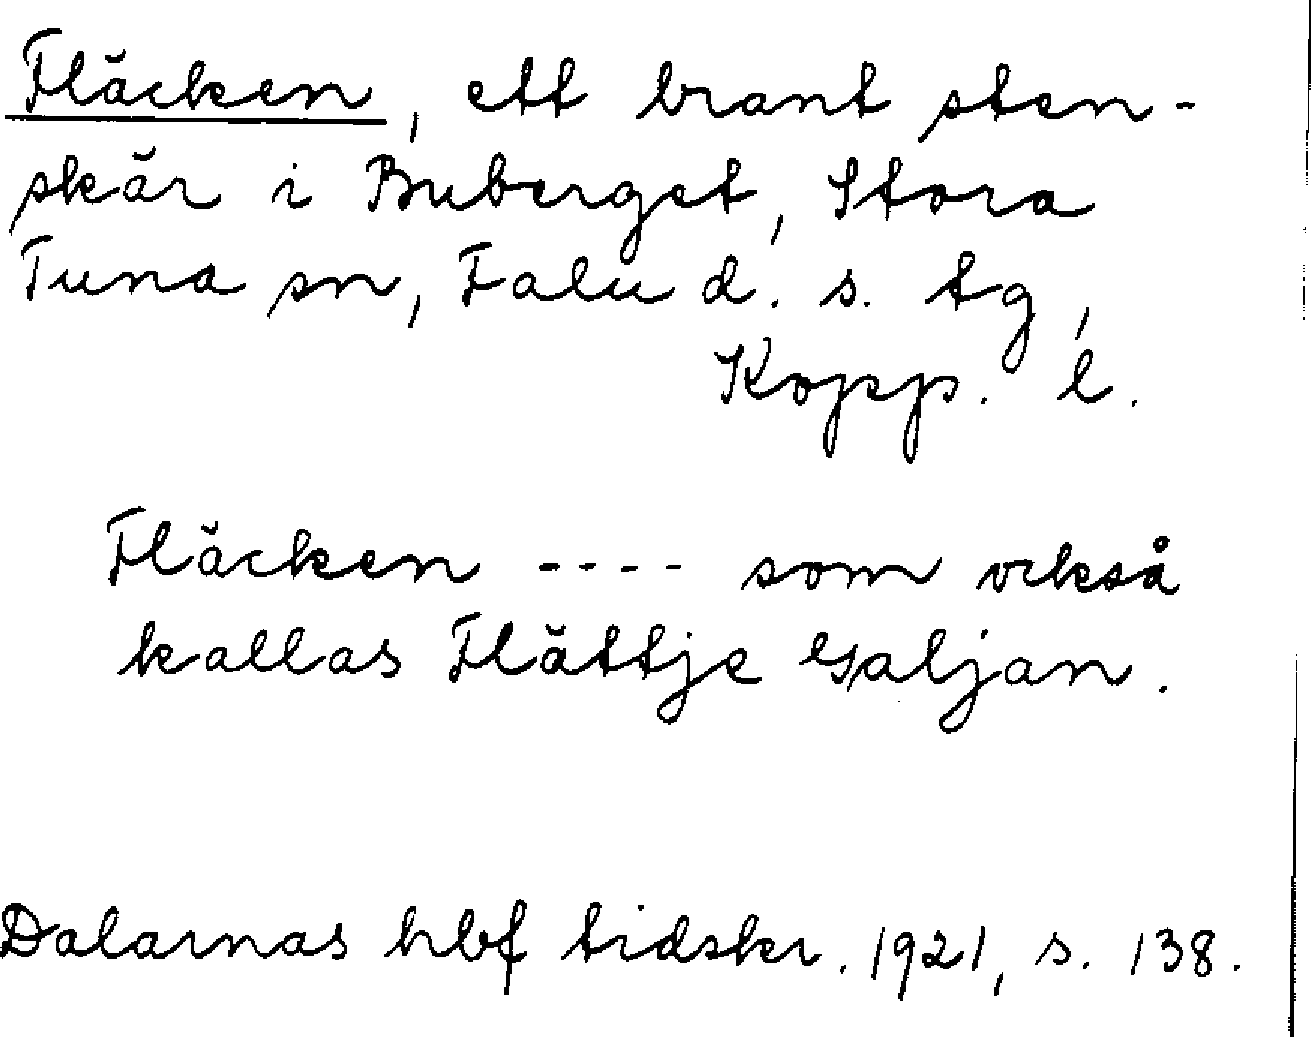 Fläcken, ett brant sten-
skär i Buberget, Stora
Tuna sn, Falu d. s. tg,
Kopp. l.
Fläcken ---- som också
kallas Flättje Galjan.
Dalarnas hbf tidskr. 1921, s. 138.